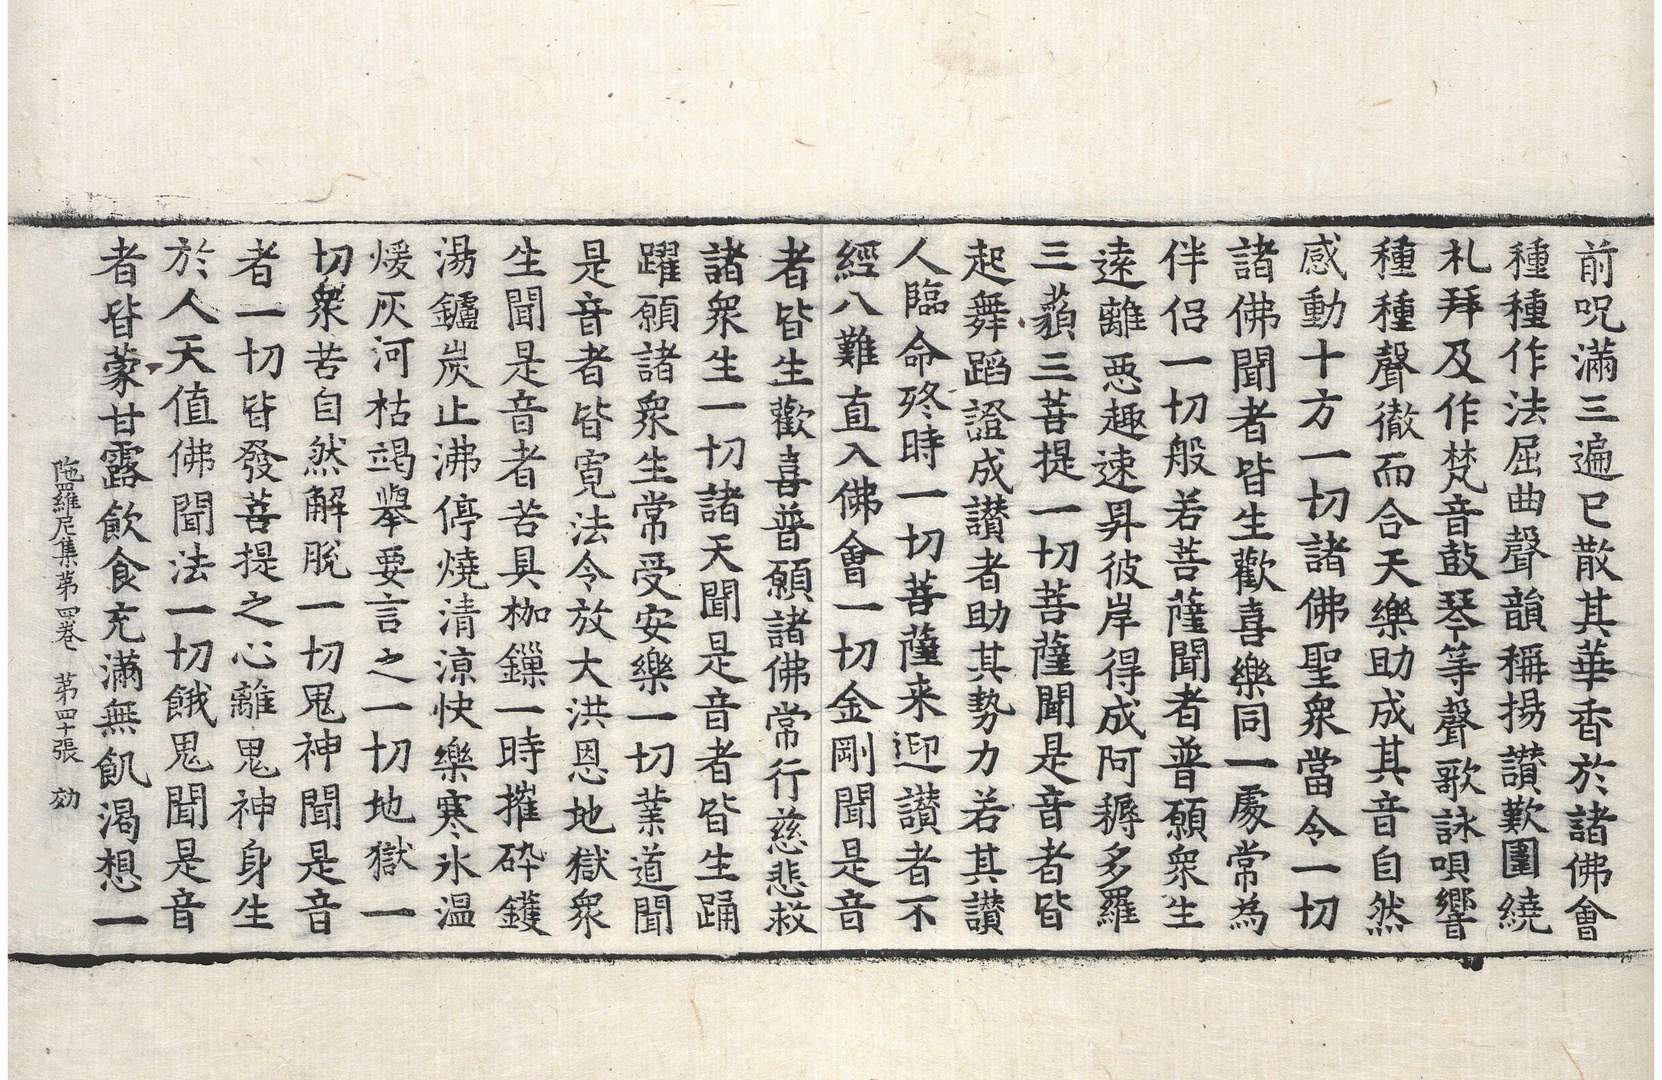 前呪滿三遍已散其華香於諸佛會
種種作法屈曲聲韻稱揚讃歎圍繞
礼拜及作梵音鼓琴等聲歌詠唄響
種種聲徹而合天樂助成其音自然
感動十方一切諸佛聖衆當令一切
諸佛聞者皆生歡喜樂同一處常為
伴侶一切般若菩薩聞者普願衆生
遠離惡趣速昇彼岸得成阿耨多羅
三藐三菩提一切菩薩聞是音者皆
起舞蹈證成讃者助其勢力若其讃
人臨命終時一切菩薩来迎讃者不
經八難直入佛會一切金剛聞是音
者皆生歡喜普願諸佛常行慈悲救
諸衆生一切諸天聞是音者皆生踊
躍願諸衆生常受安樂一切業道聞
是音者皆寬法令放大洪恩地獄衆
生聞是音者苦具枷鏁一時摧碎鑊
湯鑪炭止沸停燒清涼快樂寒氷温
煖灰河枯竭舉要言之一切地獄一
切衆苦自然解脫一切鬼神聞是音
者一切皆發菩提之心離鬼神身生
於人天值佛聞法一切餓鬼聞是音
者皆蒙甘露飲食充滿無飢渴想一
陁羅尼集第四卷 第四十張 効